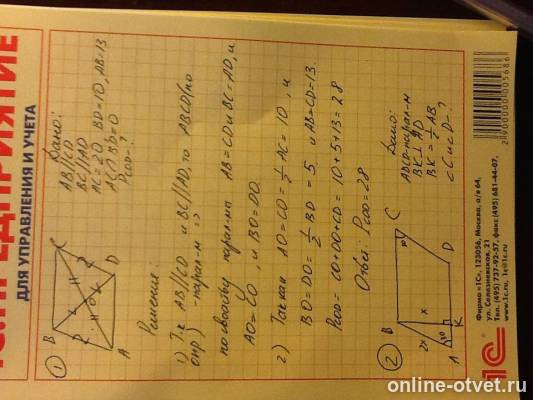 ПРИЯТИЕ
ДЛЯ УПРАВЛЕНИЯ И УЧЕТА
①
B
C
A
D
O
Дано:
AB||CD
BC||AD
AC=20 BD=10, AB=13
AC∩BD=O
Pcod-?
Решение:
1) Т.к AB||CD и BC||AD, то ABCD (по
опр) -парал-м =>
по свойству парал-ма AB=CD и BC=AD, и
AO=CO, и BO=DO
2) Так как AO=CO=½AC=10, и
BO=DO=½BD=5 и AB=CD=13
Pcod= CO+DO+CD=10+5+13=28
Ответ: Pcod=28
②
B
C
2x
x
30
A
K
D
Дано:
ABCD-парал-м
BK⊥AD
BK=½AB
<C и <D-?
Фирма «1С», 123056, Москва, а/я 64,
ул. Селезневская, 21
тел. (495) 737-92-57, факс (495) 681-44-07,
www.1c.ru, 1c@1c.ru
2900000005686
1С
online-otvet.ru